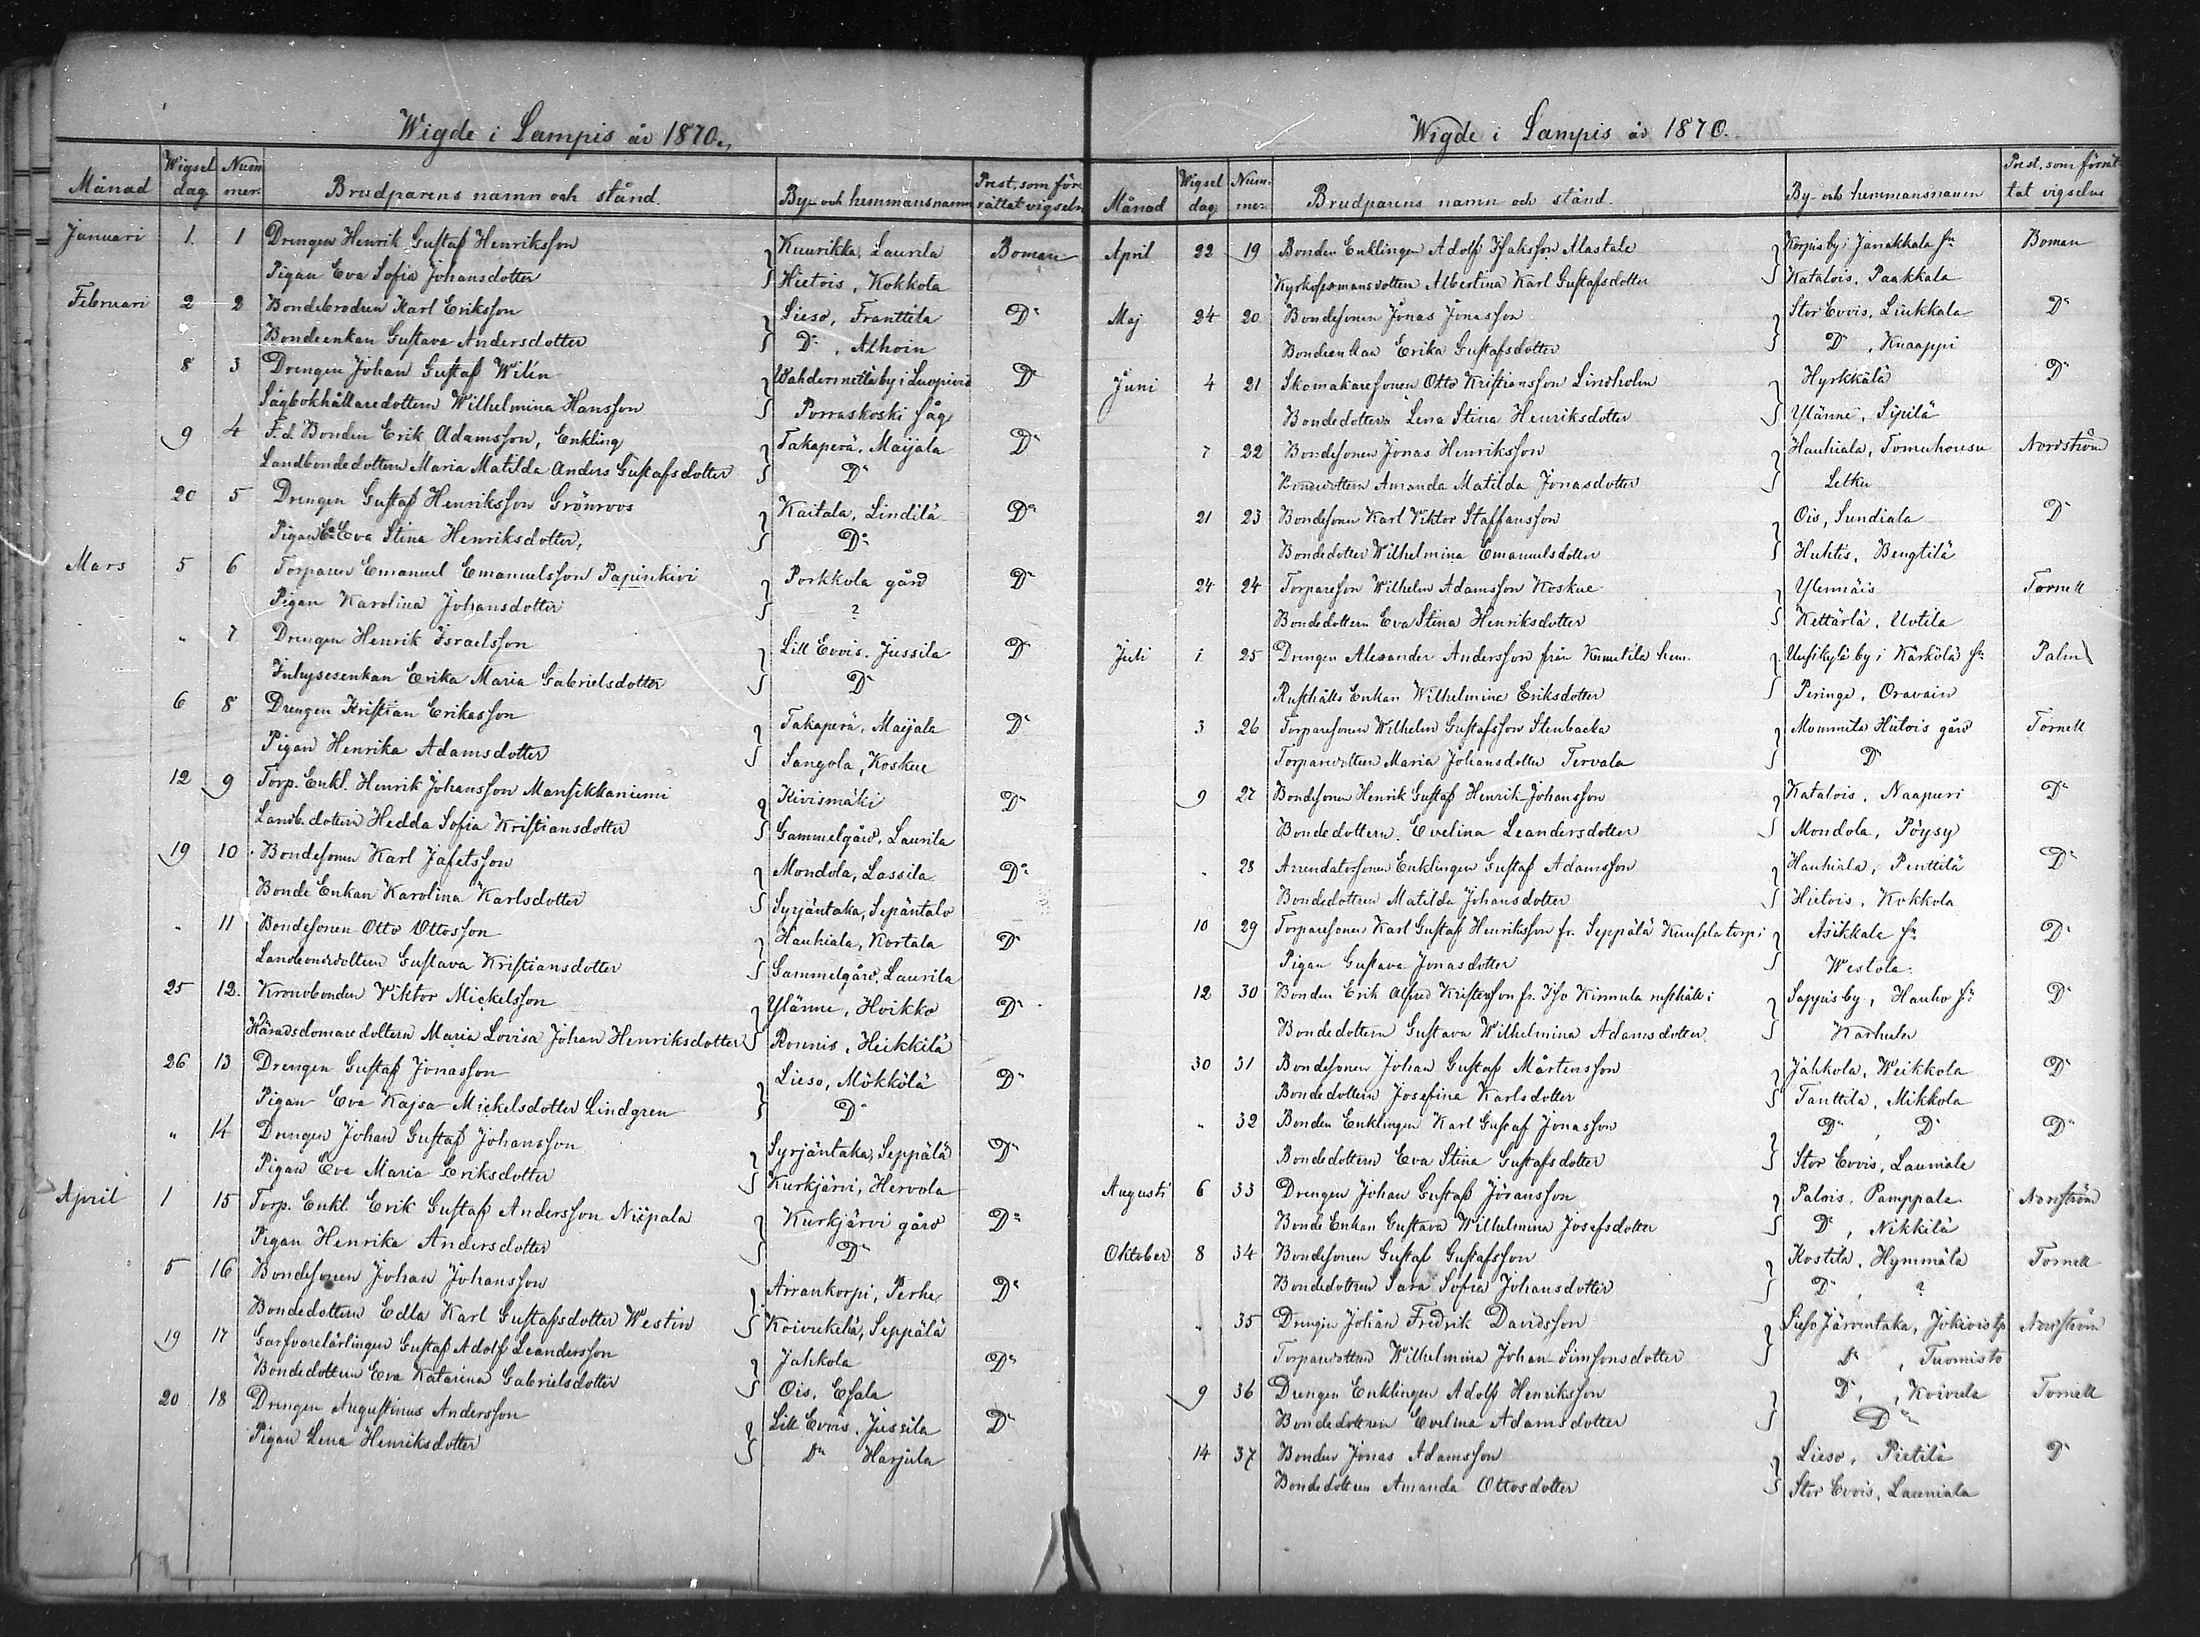 Wigde i Lampis år 1870.
Månad Wigsel dag Num mer. Brudparens namn och stånd. By- och hemmansnamn Prest. som för rättat vigseln
Januari 1. 1 Drengen Henrik Gustaf Henriksson Kuurikka, Laurila Boman
Pigan Eva Sofia Johansdotter Hietois, Kokkola
Februari 2 2 Bondebrodren Karl Eriksson Lieso, Franttila D:o
Bondeenkan Gustava Andersdotter D:o, Alhoin
8 3 Drengen Johan Gustaf Wilén by i Luopiois D:o
Sågbokhållaredottern Wilhelmina Hansson Porraskoski såg
9 4 F.d. Bonden Erik Adamsson, Enkling Takaperä, Maijala D:o
Landbondedottern Maria Matilda Anders Gustafsdotter D:o
20 5 Drengen Gustaf Henriksson Grönroos Kaitala, Lindilä D:o
Pigan Eva Stina Henriksdotter, D:o
Mars 5 6 Torparen Emanuel Emanuelsson Papinkivi Porkkola gård D:o
Pigan Karolina Johansdotter ?
" 7 Drengen Henrik Israelsson Lill Evois, Jussila D:o
Inhysesenkan Erika Maria Gabrielsdotter D:o
6 8 Drengen Kristian Eriksson Takaperä, Maijala D:o
Pigan Henrika Adamsdotter Sangola, Koskue
12 9 Torp. Enkl. Henrik Johansson Mansikkaniemi Kivismäki D:o
Landb. dottern Hedda Sofia Kristiansdotter Gammelgård, Laurila
19 10 Bondesonen Karl Jafetsson Mondola, Lassila D:o
Bonde Enkan Karolina Karlsdotter Syrjäntaka, Sepäntalo
" 11 Bondesonen Otto Ottosson Haukiala, Kortala D:o
Landbondedottern Gustava Kristiansdotter Gammelgård, Laurila
25 12. Kronobonden Viktor Mickelsson Ylänne, Hoikko D:o
Häradsdomaredottern Maria Lovisa Johan Henriksdotter Ronnis, Heikkilä
26 13 Drengen Gustaf Jonasson Lieso, Mökkölä D:o
Pigan Eva Kajsa Mickelsdotter Lindgren D:o
" 14 Drengen Johan Gustaf Johansson Syrjäntaka, Seppälä D:o
Pigan Eva Maria Eriksdotter Kurkjärvi, Hervola
April 1 15 Torp. Enkl. Erik Gustaf Andersson Niipala Kurkjärvi gård D:o
Pigan Henrika Andersdotter D:o
5 16 Bondesonen Johan Johansson Arrankorpi, Perhe D:o
Bondedottern Edla Karl Gustafsdotter Westin Koivukelä, Seppälä
19 17 Garfvarelärlingen Gustaf Adolf Leandersson Jahkola D:o
Bondedottern Eva Katarina Gabrielsdotter Ois, Esala
20 18 Drengen Augustinus Andersson Lill Evois, Jussila D:o
Pigan Lena Henriksdotter D:o Harjula
Wigde i Lampis år 1870.
Månad Wigsel dag Num mer. Brudparens namn och stånd. By- och hemmansnamn Prest. som förrät tat vigseln
April 22 19 Bonden Enklingen Adolf Isaksson Alastalo Korpis by i Janakkala s:n Boman
Albertina Karl Gustafsdotter Katalois, Paakkala
Maj 24 20 Bondesonen Jonas Jonasson Stor Evois, Liukkala D:o
Bondeenkan Erika Gustafsdotter D:o, Knaappi
Juni 4 21 Skomakaresonen Otto Kristiansson Lindholm Hyrkkälä D:o
Bondedottern Lena Stina Henriksdotter Ylänne, Sipilä
7 22 Bondesonen Jonas Henriksson Haukiala, Nordström
Bondedottern Amanda Matilda Jonasdotter Letku
21 23 Bondesonen Karl Viktor Staffansson Ois, Sundiala D:o
Bondedotter Wilhelmina Emanuelsdotter Huhtis, Bengtilä
24 24 Torpareson Wilhelm Adamsson Koskue Ylennäis Tornell
Bondedottern Eva Stina Henriksdotter Kettärlä, Uotila
Juli 1 25 Drengen Alexander Andersson från Kunutila hem. Uusikylä by i Kärkölä s:n Palin
Rusthålls Enkan Wilhelmina Eriksdotter Peringe, Oravain
3 26 Torparesonen Wilhelm Gustafsson Stenbacka Mommila Hietois gård Tornell
Torparedottern Maria Johansdotter Tervala D:o
9 27 Bondesonen Henrik Gustaf Henrik Johansson Katalois, Naapuri D:o
Bondedottern Evelina Leandersdotter Mondola, Pöysy
" 28 Arrendatorsonen Enklingen Gustaf Adamsson Haukiala, Penttilä D:o
Bondedottren Matilda Johansdotter Hietois, Kokkola
10 29 Torparesonen Karl Gustaf Henriksson fr. Seppälä Kuusela torp i Asikkala s:n D:o
Pigan Gustava Jonasdotter Westola
12 30 Bonden Erik Alfred Kristersson fr. Iso Kinnula rusthåll i Sappis by, Hauho s:n D:o
Bondedottern Gustava Wilhelmina Adamsdotter Karhula
30 31 Bondesonen Johan Gustaf Mårtensson Jahkola, Weikkola D:o
Bondedottern Josefina Karlsdotter Tanttila, Mikkola
" 32 Bonden Enklingen Karl Gustaf Jonasson D:o, D:o D:o
Bondedottern Eva Stina Gustafsdotter Stor Evois, Launiala
Augusti 6 33 Drengen Johan Gustaf Göransson Palois, Pamppala Nordström
Bonde Enkan Gustava Wilhelmina Josefsdotter D:o, Nikkilä
Oktober 8 34 Bondesonen Gustaf Gustafsson Kostila, Hymmälä Tornell
Bondedottren Sara Sofia Johansdotter D:o, ?
" 35 Drengen Johan Fredrik Davidsson Lieso Järventaka, Jokivis tp Nordström
Torparedottren Wilhelmina Johan Simsonsdotter D:o, Tuomisto
9 36 Drengen Enklingen Adolf Henriksson D:o, Koivula Tornell
Bondedottren Evelina Adamsdotter D:o
14 37 Bonden Jonas Adamsson Lieso, Pietilä D:o
Bondedottren Amanda Ottosdotter Stor Evois, Launiala